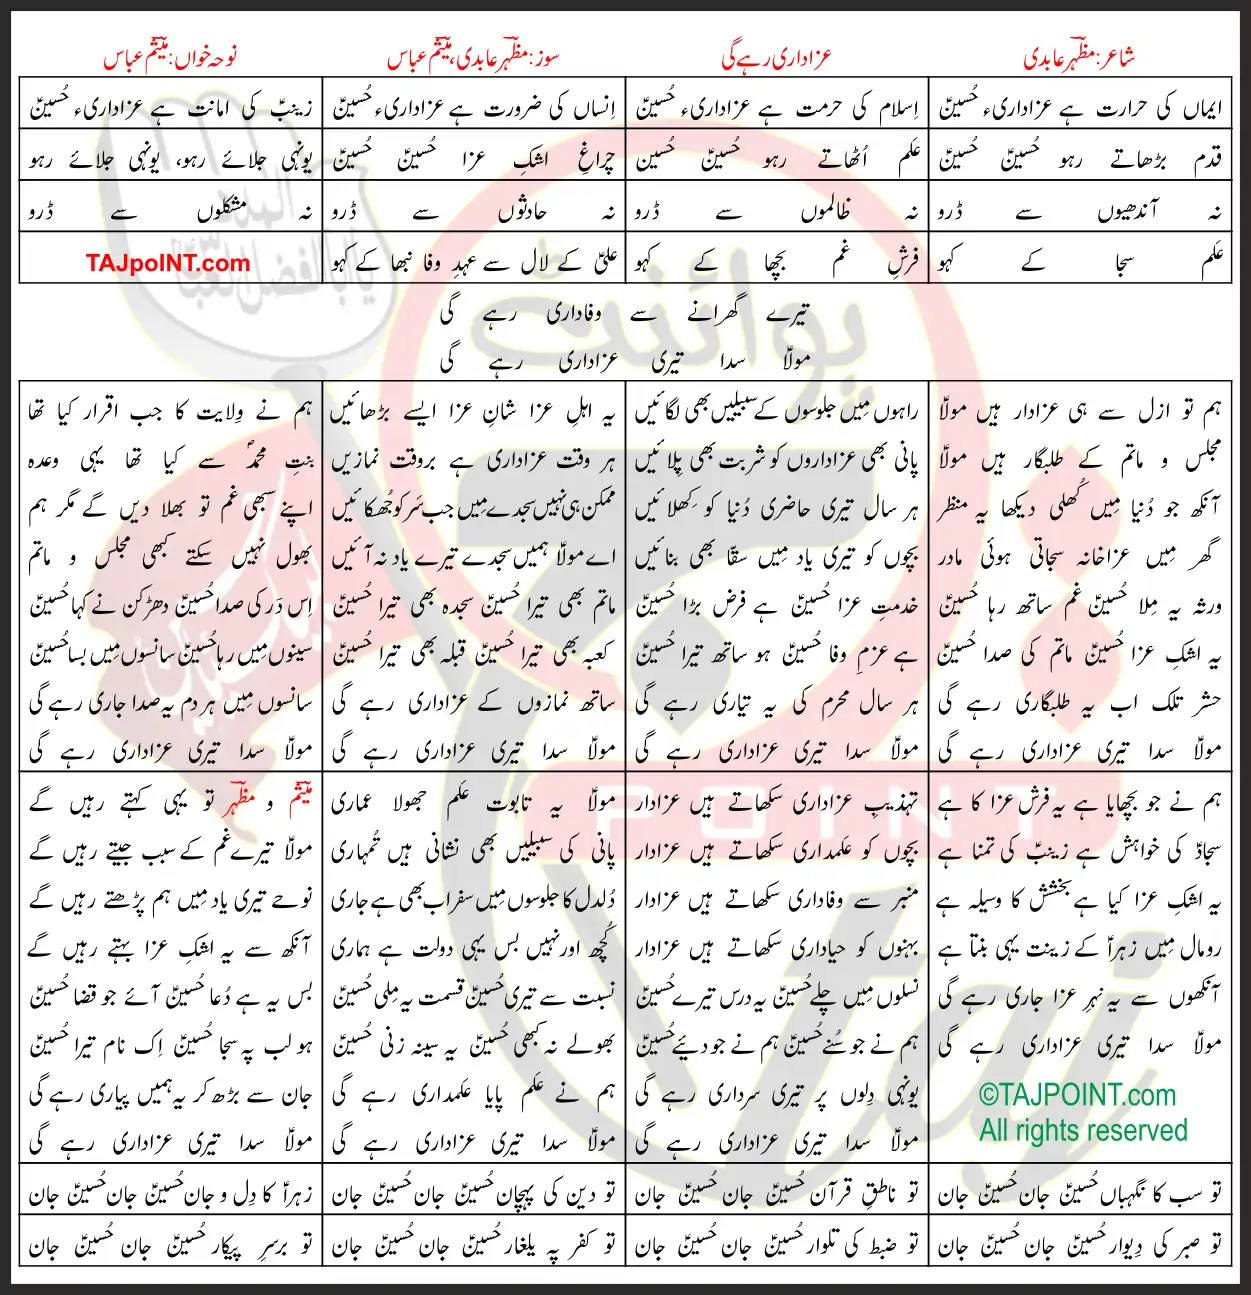 شاعر: مظہر عابدی
عزاداری رہے گی
سوز: مظہر عابدی، میثم عباس
نوحہ خواں: میثم عباس
ایماں کی حرارت ہے عزاداریء حُسینؑ
اِسلام کی حرمت ہے عزاداریء حُسینؑ
اِنساں کی ضرورت ہے عزاداریء حُسینؑ
زینبؑ کی امانت ہے عزاداریء حُسینؑ
قدم بڑھاتے رہو حُسینؑ حُسینؑ
عَلم اُٹھاتے رہو حُسینؑ حُسین
چراغِ اشکِ عزا حُسینؑ حُسینؑ
یونہی جلائے رہو، یونہی جلائے رہو
نہ آندھیوں سے ڈرو
نہ ظالموں سے ڈرو
نہ حادثوں سے ڈرو
نہ مشکلوں سے ڈرو
عَلم سجا کے کہو
فرشِ غم بچھا کے کہو
علیؑ کے لال سے عہدِ وفا نبھا کے کہو
TAJpoINT.com
تیرے گھرانے سے وفاداری رہے گی
مولاؑ سدا تیری عزاداری رہے گی
ہم تو ازل سے ہی عزادار ہیں مولاؑ
مجلس و ماتم کے طلبگار ہیں مولاؑ
آنکھ جو دُنیا مِیں کُھلی دیکھا یہ منظر
گھر مِیں عزاخانہ سجاتی ہوئی مادر
ورثہ یہ مِلا حُسینؑ غم ساتھ رہا حُسینؑ
یہ اشکِ عزا حُسینؑ ماتم کی صدا حُسینؑ
حشر تلک اب یہ طلبگاری رہے گی
مولاؑ سدا تیری عزاداری رہے گی
راہوں مِیں جلوسوں کے سبیلیں بھی لگائیں
پانی بھی عزاداروں کو شربت بھی پِلائیں
ہر سال تیری حاضری دُنیا کو کِھلائیں
بچوں کو تیری یاد مِیں سقّا بھی بنائیں
خدمتِ عزا حُسینؑ ہے فرض بڑا حُسینؑ
ہے عزمِ وفا حُسینؑ ہو ساتھ تیرا حُسینؑ
ہر سال محرم کی یہ تیّاری رہے گی
مولاؑ سدا تیری عزاداری رہے گی
یہ اہلِ عزا شانِ عزا ایسے بڑھائیں
ہر وقت عزاداری ہے بروقت نمازیں
ممکن ہی نہیں سجدے مِیں جب سَر کو جُھکائیں
اے مولاؑ ہمیں سجدے تیرے یاد نہ آئیں
ماتم بھی تیرا حُسینؑ سجدہ بھی تیرا حُسینؑ
کعبہ بھی تیرا حُسینؑ قبلہ بھی تیرا حُسینؑ
ساتھ نمازوں کے عزاداری رہے گی
مولاؑ سدا تیری عزاداری رہے گی
ہم نے وِلایت کا جب اقرار کیا تھا
بنتِ محمدؐ سے کیا تھا یہی وعدہ
اپنے سبھی غم تو بھلا دیں گے مگر ہم
بھول نہیں سکتے کبھی مجلس و ماتم
اِس دَر کی صدا حُسینؑ دھڑکن نے کہا حُسینؑ
سینوں مِیں رہا حُسینؑ سانسوں مِیں بسا حُسینؑ
سانسوں مِیں ہر دم یہ صدا جاری رہے گی
مولاؑ سدا تیری عزاداری رہے گی
ہم نے جو بچھایا ہے یہ فرش عزا کا ہے
سجادؑ کی خواہش ہے زینبؑ کی تمنا ہے
یہ اشکِ عزا کیا ہے بخشش کا وسیلہ ہے
رومال مِیں زہراؑ کے زینت یہی بنتا ہے
آنکھوں سے یہ نہرِ عزا جاری رہے گی
مولاؑ سدا تیری عزاداری رہے گی
©TAJPOINT.com
All rights reserved
تہذیبِ عزاداری سکھاتے ہیں عزادار
بچوں کو عَلمداری سکھاتے ہیں عزادار
منبر سے وفاداری سکھاتے ہیں عزادار
بہنوں کو حیاداری سکھاتے ہیں عزادار
نسلوں مِیں چلے حُسینؑ یہ درس تیرے حُسینؑ
ہم نے جو سُنے حُسینؑ ہم نے جو دیئے حُسینؑ
یونہی دِلوں پر تیری سرداری رہے گی
مولاؑ سدا تیری عزاداری رہے گی
مولاؑ یہ تابوت عَلم جھولا عماری
پانی کی سبیلیں بھی نشانی ہیں تُمہاری
دُلدل کا جلوسوں مِیں سفر اب بھی ہے جاری
کُچھ اور نہیں بس یہی دولت ہے ہماری
نسبت سے تیری حُسینؑ قسمت یہ مِلی حُسینؑ
بھولے نہ کبھی حُسینؑ یہ سینہ زنی حُسینؑ
ہم نے عَلم پایا عَلمداری رہے گی
مولاؑ سدا تیری عزاداری رہے گی
میثم و مظہر تو یہی کہتے رہیں گے
مولاؑ تیرے غم کے سبب جیتے رہیں گے
نوحے تیری یاد مِیں ہم پڑھتے رہیں گے
آنکھ سے یہ اشکِ عزا بہتے رہیں گے
بس یہ ہے دُعا حُسینؑ آئے جو قضا حُسینؑ
ہو لب پہ سجا حُسینؑ اِک نام تیرا حُسینؑ
جان سے بڑھ کر یہ ہمیں پیاری رہے گی
مولاؑ سدا تیری عزاداری رہے گی
تو سب کا نگہباں حُسینؑ جان حُسینؑ جان
تو ناطقِ قرآن حُسینؑ جان حُسینؑ جان
تو دین کی پہچان حُسینؑ جان حُسینؑ جان
زہراؑ کا دِل و جان حُسینؑ جان حُسینؑ جان
تو صبر کی دِیوار حُسینؑ جان حُسینؑ جان
تو ضبط کی تلوار حُسینؑ جان حُسینؑ جان
تو کفر پہ یلغار حُسینؑ جان حُسینؑ جان
تو برسرِ پیکار حُسینؑ جان حُسینؑ جان